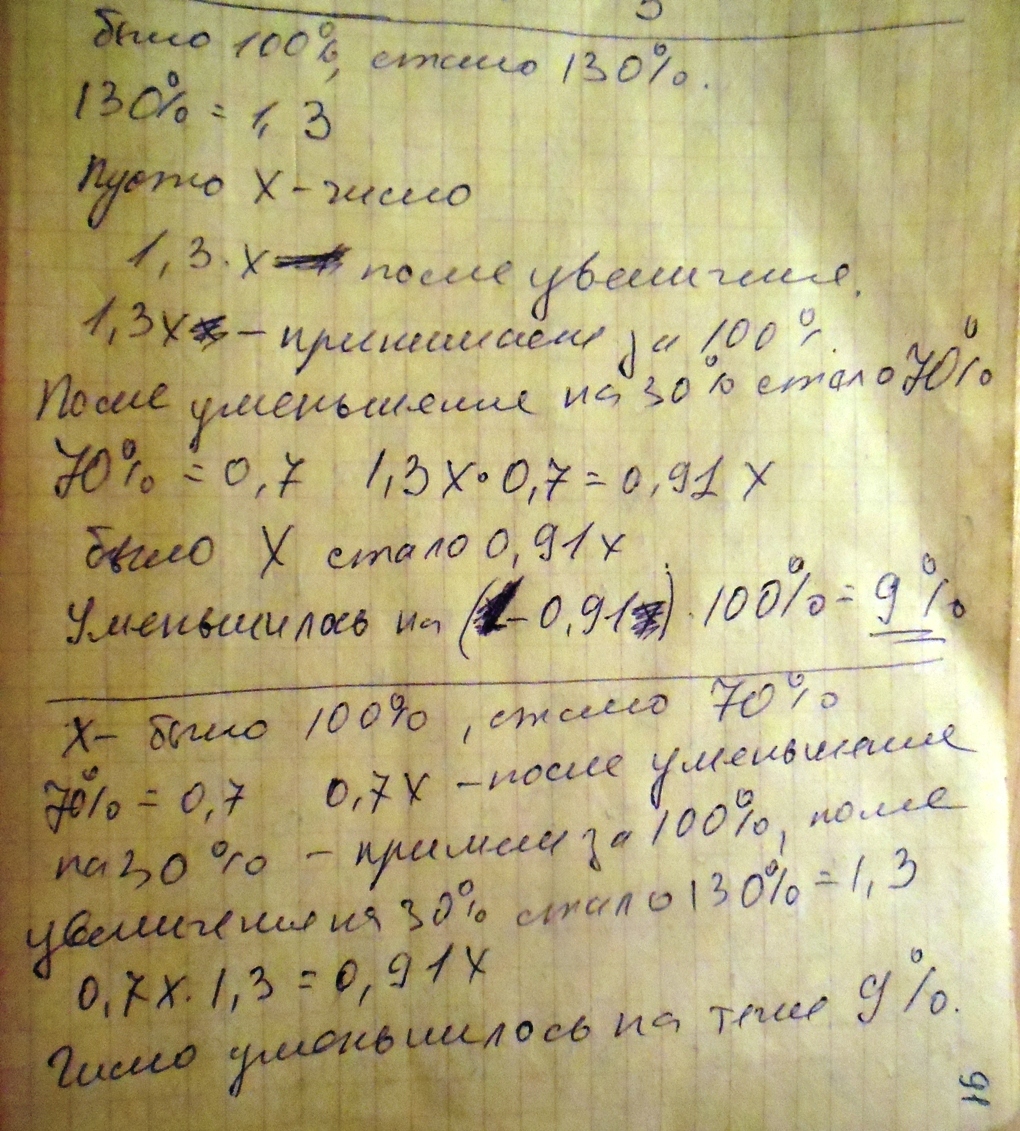 5
было 100%, стало 130%.
130% = 1,3
Пусть X - число
1,3 · x после увеличения.
1,3x - принимаем за 100%.
После уменьшения на 30% стало 70%
70% = 0,7 1,3 x · 0,7 = 0,91 x
было X стало 0,91x
Уменьшилось на (1 - 0,91) · 100% = 9%
X - было 100%, стало 70%
70% = 0,7 0,7x - после уменьшения
на 30% - примем за 100%, после
увеличения на 30% стало 130% = 1,3
0,7x · 1,3 = 0,91x
Число уменьшилось на теже 9%.
16